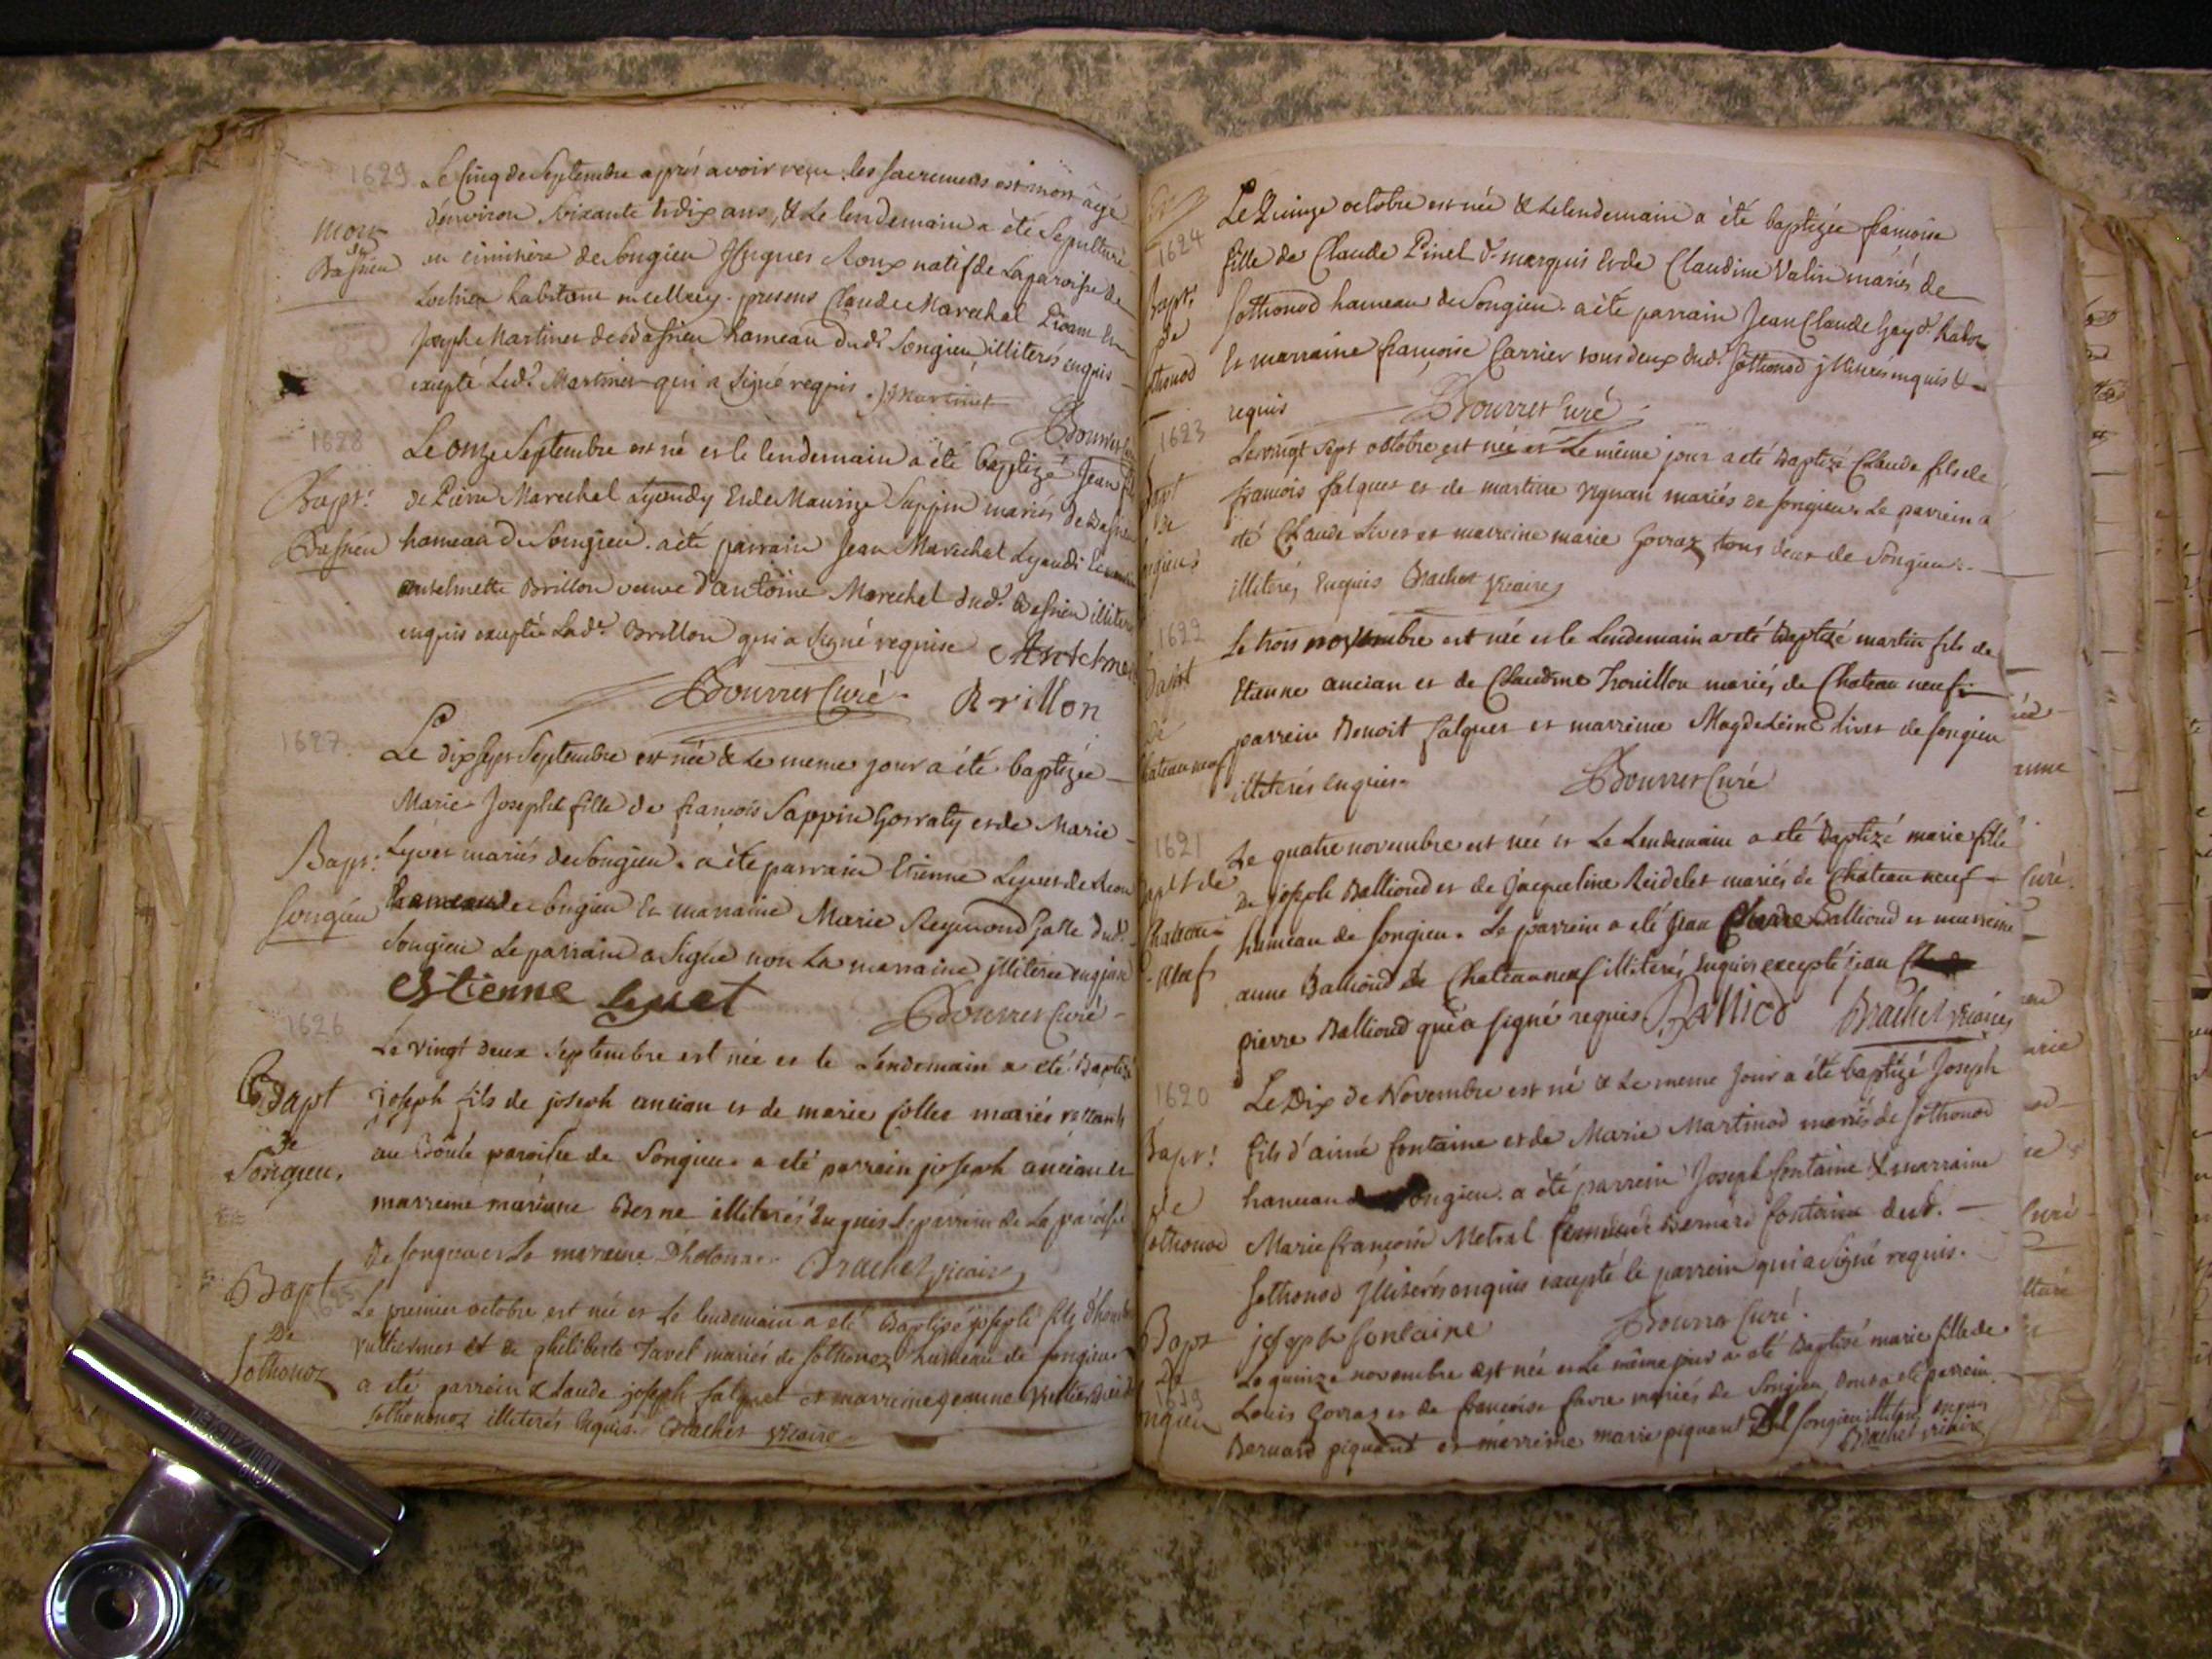 1629
Le Cinq de Septembre après avoir reçu les sacremens est mort âgé
d'environ soixante et dix ans, & le lendemain a été sepulturé
Mort
de
Bassieu
au cimitière de Songieu Hugues Roux natif de la paroisse de
Lochieu habitant presens Claude Marechal
Joseph Martinet de Bassieu hameau dud? Songieu, illiterés enquis
excepté led? Martinet qui a signé requis. J: Martinet
Bourret
1628
Le onze Septembre est né et le lendemain a été baptizé Jean
Bapt:
de Pierre Marechal Lyaudy et de Maurize Sappin mariés de Bassieu
Bassieu
hameau de Songieu. a été parrain Jean Marechal Lyaudi
anthelmette Brillon veuve d'antoine Marechal dud? Bassieu
enquis excepté lad? Brillon qui a signé requise Antelme
Bourret Curé. Brillon
1627
Le dix sept Septembre est née & le meme jour a été baptizée
Marie Josephe fille de françois Sappin Gorraty et de Marie
Bapt:
Songieu
Lyvet mariés de Songieu. a été parrain Etienne Lyvet de
hameau de Songieu et marraine Marie Reymond Jasse dud?
Songieu le parrain a signé non la marraine illiterée enquise
estienne Leyvet
Bourret Curé
1626
Le vingt deux Septembre est née et le Lendemain a eté Baptizé
Bapt
de
Songieu.
joseph fils de joseph ancian et de marie follet mariés
au paroisse de Songieu. a eté parrein joseph ancian et
marreine mariane Berne illiterés Enquis Le parrein de La paroisse
de songieu et La mareine
Brachet vicaire
Bapt
De
Sothonoz
Le premier octobre est née et Le lendemain a eté Baptizé joseph fils
et de philiberte Tavel mariés de Sothonoz hameau de songieu
a eté parrein Claude joseph falquet et marreine jeanne
Sothononoz illiterés Enquis. Brachet vicaire
1624
Le Quinze octobre est née & le lendemain a été baptizée françoise
fille de Claude Pinel d? marquis et de Claudine Valin mariés de
Bapt:
de
Sothonod hameau de Songieu. a été parrain Jean Claude
et marraine françoise Carrier tous deux dud. Sothonod illiterés enquis &
requis Bourret Curé
1623
Le vingt sept octobre est née et Le même jour a eté Baptizé Claude fils de
Bapt
de
françois falquet et de martine mariés de songieu. Le parrein a
eté Claude Livet et mareine marie Gorraz tous deux de Songieu.
illiterés Enquis Brachet vicaire
1622
Le trois novembre est née et le Lendemain a eté Baptizé martin fils de
Bapt
de
Chateauneuf
Etienne ancian et de Claudine Trouillon mariés de Chateau neuf
parrein Benoit falquet et marreine Magdeleine Livet de songieu
illiterés enquis. Bourret Curé
1621
Le quatre novembre est née et Le Lendemain a eté Baptizé marie fille
Bapt de
Chateau
neuf
de joseph Balliod et de jacqueline Reidelet mariés de Chateau neuf
hameau de songieu. Le parrein a eté jean Balliod et mareine
anne Balliod de Chateauneuf illiterés, Enquis excepté jean
pierre Balliod qui a signé requis. Balliod Brachet vicaire
1620
Le Dix de Novembre est né & le meme jour a été baptizé Joseph
Bapt:
de
Sothonod
fils d'aimé fontaine et de Marie Martinod mariés de Sothonod
hameau Songieu. a été parrein Joseph fontaine & marraine
Marie françoise Metral femme de Bernard fontaine dud.
Sothonod illiterés enquis excepté le parrein qui a signé requis.
joseph fontaine Bourret Curé.
Bapt
De
1619
Songieu
Le quinze novembre est née et Le même jour a eté Baptizé marie fille de
Louis Gorraz et de francoise favre mariés de Songieu, dont a eté parrein
Bernard piquand et marreine marie piquand de songieu illiterés enquis
Brachet vicaire